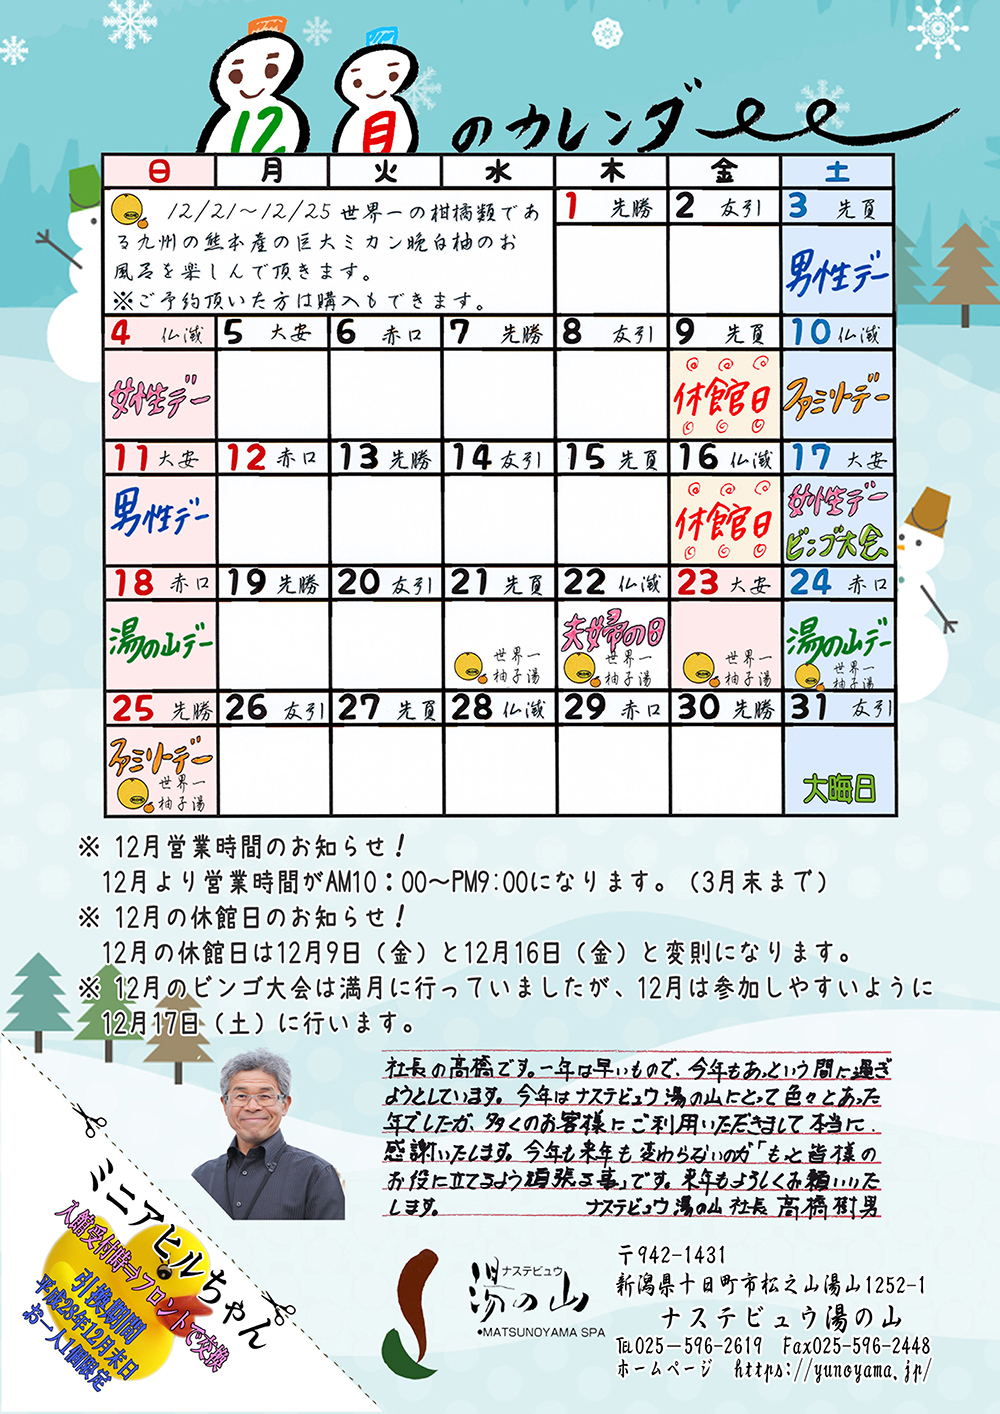 12月のカレンダー
日 月 火 水 木 金 土
12/21～12/25 世界一の柑橘類であ
る九州の熊本産の巨大ミカン晩白柚のお
風呂を楽しんで頂きます。
※ご予約頂いた方は購入もできます。
1 先勝 2 友引 3 先負
男性デー
4 仏滅 5 大安 6 赤口 7 先勝 8 友引 9 先負 10 仏滅
女性デー 休館日 ファミリーデー
11 大安 12 赤口 13 先勝 14 友引 15 先負 16 仏滅 17 大安
男性デー 休館日 女性デー
ビンゴ大会
18 赤口 19 先勝 20 友引 21 先負 22 仏滅 23 大安 24 赤口
湯の山デー 夫婦の日 湯の山デー
世界一 世界一 世界一 世界一
柚子湯 柚子湯 柚子湯 柚子湯
25 先勝 26 友引 27 先負 28 仏滅 29 赤口 30 先勝 31 友引
ファミリーデー
世界一
柚子湯 大晦日
※ 12月営業時間のお知らせ！
12月より営業時間がAM10：00～PM9:00になります。（3月末まで）
※ 12月の休館日のお知らせ！
12月の休館日は12月9日（金）と12月16日（金）と変則になります。
※ 12月のビンゴ大会は満月に行っていましたが、12月は参加しやすいように
12月17日（土）に行います。
社長の高橋です。一年は早いもので、今年もあっという間に過ぎ
ようとしています。今年はナステビュウ湯の山にとって色々とあった
年でしたが、多くのお客様にご利用いただきまして本当に、
感謝いたします。今年も来年も変わらないのが「もっと皆様の
お役に立てるよう頑張る事」です。来年もよろしくお願いいた
します。 ナステビュウ湯の山 社長 高橋樹男
ミニアヒルちゃん
入館受付時⇒フロントで交換
引換期間
平成28年12月末日
お一人1個限定
ナステビュウ
湯の山
●MATSUNOYAMA SPA
〒942-1431
新潟県十日町市松之山湯山1252-1
ナステビュウ湯の山
℡025-596-2619 Fax025-596-2448
ホームページ https://yunoyama.jp/